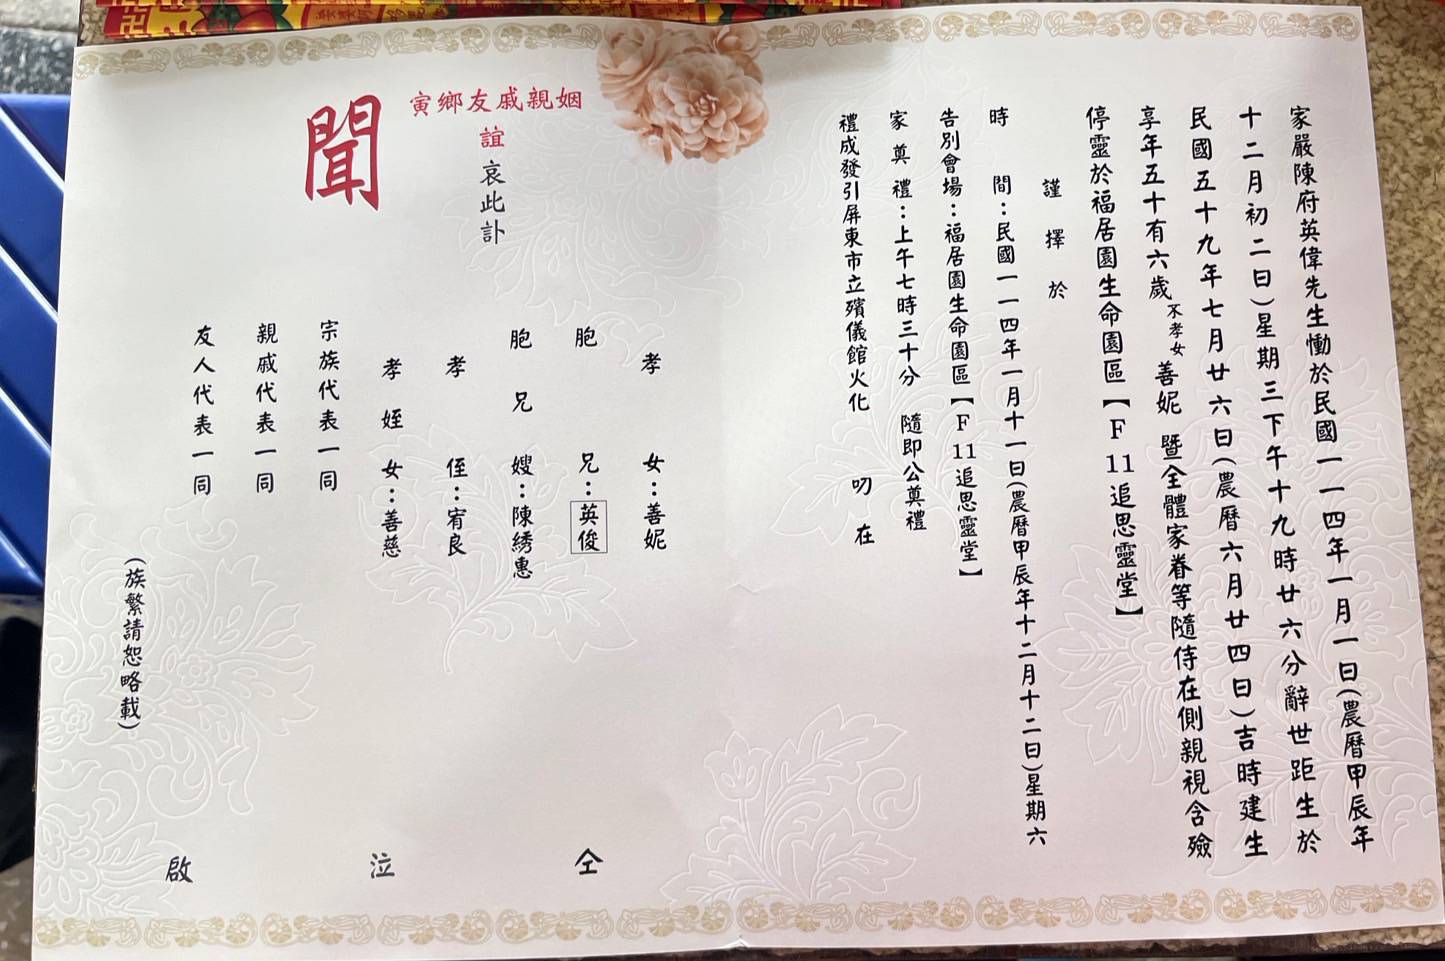 家嚴陳府英偉先生慟於民國一一四年一月一日(農曆甲辰年
十二月初二日)星期三下午十九時廿六分辭世距生於
民國五十九年七月廿六日(農曆六月廿四日)吉時建生
享年五十有六歲不孝女善妮 暨全體家眷等隨侍在側親視含殮
停靈於福居園生命園區【F11追思靈堂】
謹擇於
時間:民國一一四年一月十一日(農曆甲辰年十二月十二日)星期六
告別會場:福居園生命園區【F11追思靈堂】
家奠禮:上午七時三十分 隨即公奠禮
禮成發引屏東市立殯儀館火化 叨在
寅鄉友戚親姻
誼哀此訃
聞
孝女:善妮
胞兄:英俊
胞兄嫂:陳綉惠
孝侄:宥良
孝姪女:善慈
宗族代表一同
親戚代表一同
友人代表一同
(族繁請恕略載)
仝泣啟